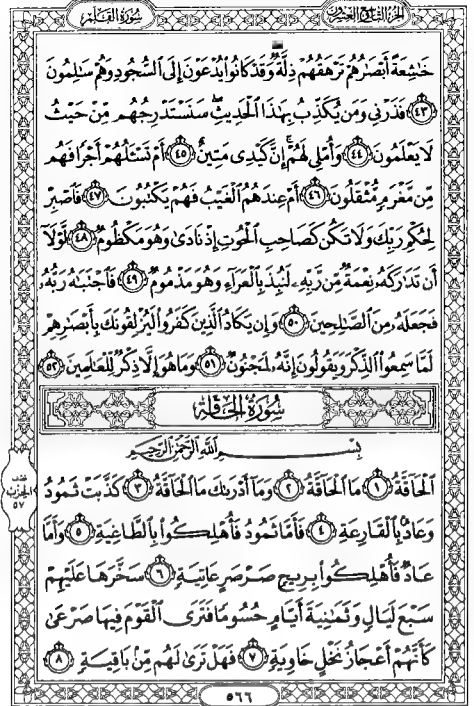 سُورَةُ القَلَمِ
الجُزءُ التَّاسِعُ وَالعِشْرُونَ
خَٰشِعَةً أَبْصَٰرُهُمْ تَرْهَقُهُمْ ذِلَّةٌۖ وَقَدْ كَانُوا۟ يُدْعَوْنَ إِلَى ٱلسُّجُودِ وَهُمْ سَٰلِمُونَ
٤٣ فَذَرْنِى وَمَن يُكَذِّبُ بِهَٰذَا ٱلْحَدِيثِۖ سَنَسْتَدْرِجُهُم مِّنْ حَيْثُ
لَا يَعْلَمُونَ ٤٤ وَأُمْلِى لَهُمْۚ إِنَّ كَيْدِى مَتِينٌ ٤٥ أَمْ تَسْـَٔلُهُمْ أَجْرًا فَهُم
مِّن مَّغْرَمٍ مُّثْقَلُونَ ٤٦ أَمْ عِندَهُمُ ٱلْغَيْبُ فَهُمْ يَكْتُبُونَ ٤٧ فَٱصْبِرْ
لِحُكْمِ رَبِّكَ وَلَا تَكُن كَصَاحِبِ ٱلْحُوتِ إِذْ نَادَىٰ وَهُوَ مَكْظُومٌ ٤٨ لَّوْلَآ
أَن تَدَٰرَكَهُۥ نِعْمَةٌ مِّن رَّبِّهِۦ لَنُبِذَ بِٱلْعَرَآءِ وَهُوَ مَذْمُومٌ ٤٩ فَٱجْتَبَٰهُ رَبُّهُۥ
فَجَعَلَهُۥ مِنَ ٱلصَّٰلِحِينَ ٥٠ وَإِن يَكَادُ ٱلَّذِينَ كَفَرُوا۟ لَيُزْلِقُونَكَ بِأَبْصَٰرِهِمْ
لَمَّا سَمِعُوا۟ ٱلذِّكْرَ وَيَقُولُونَ إِنَّهُۥ لَمَجْنُونٌ ٥١ وَمَا هُوَ إِلَّا ذِكْرٌ لِّلْعَٰلَمِينَ ٥٢
سُورَةُ الحَاقَّةِ
بِسْمِ ٱللَّهِ ٱلرَّحْمَٰنِ ٱلرَّحِيمِ
ٱلْحَآقَّةُ ١ مَا ٱلْحَآقَّةُ ٢ وَمَآ أَدْرَىٰكَ مَا ٱلْحَآقَّةُ ٣ كَذَّبَتْ ثَمُودُ
وَعَادٌۢ بِٱلْقَارِعَةِ ٤ فَأَمَّا ثَمُودُ فَأُهْلِكُوا۟ بِٱلطَّاغِيَةِ ٥ وَأَمَّا
عَادٌ فَأُهْلِكُوا۟ بِرِيحٍ صَرْصَرٍ عَاتِيَةٍ ٦ سَخَّرَهَا عَلَيْهِمْ
سَبْعَ لَيَالٍ وَثَمَٰنِيَةَ أَيَّامٍ حُسُومًا فَتَرَى ٱلْقَوْمَ فِيهَا صَرْعَىٰ
كَأَنَّهُمْ أَعْجَازُ نَخْلٍ خَاوِيَةٍ ٧ فَهَلْ تَرَىٰ لَهُم مِّنۢ بَاقِيَةٍ ٨
الحِزْب
٥٧
٥٦٦